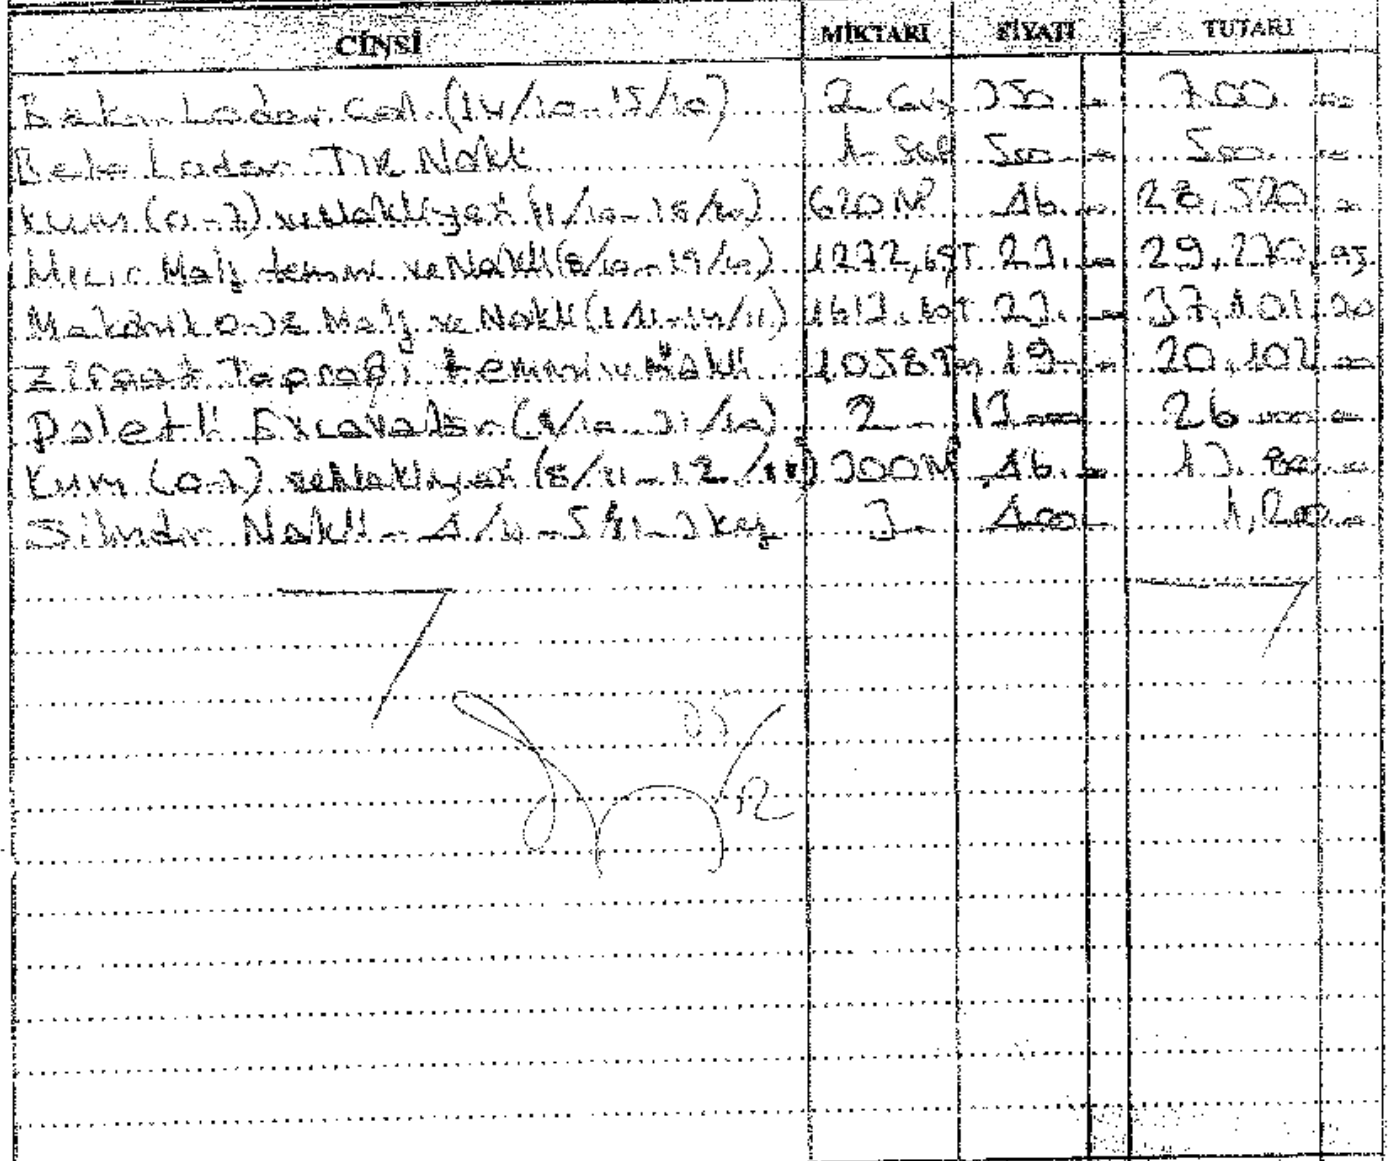 CİNSİ MİKTARI FİYATI TUTARI
Beko Loder Çal. (14/10-15/10) 2 Gün 350 00 700 00
Beko Loder TIR Nakli 1 Sef 500 00 500 00
Kum (0-3) ve Nakliyesi (11/10-18/10) 620 M³ 46 00 28,520 00
Mıcır Malz temini ve Nakli (8/10-19/10) 1272,65T 23 00 29,270 95
Mekanik Malz ve Nakli (1/11-14/11) 1613,10T 23 00 37,101 30
Ziraat Toprağı temini ve Nakli 1058 Ton 19 00 20,102 00
Paletli Excavatör (1/10-31/10) 2 13 000 26 000 00
Kum (0-3) ve Nakliyesi (8/11-12/11) 300 M³ 46 00 13,800 00
Silindir Nakli - 4/11-5/11-3 kez 3 400 1,200 00